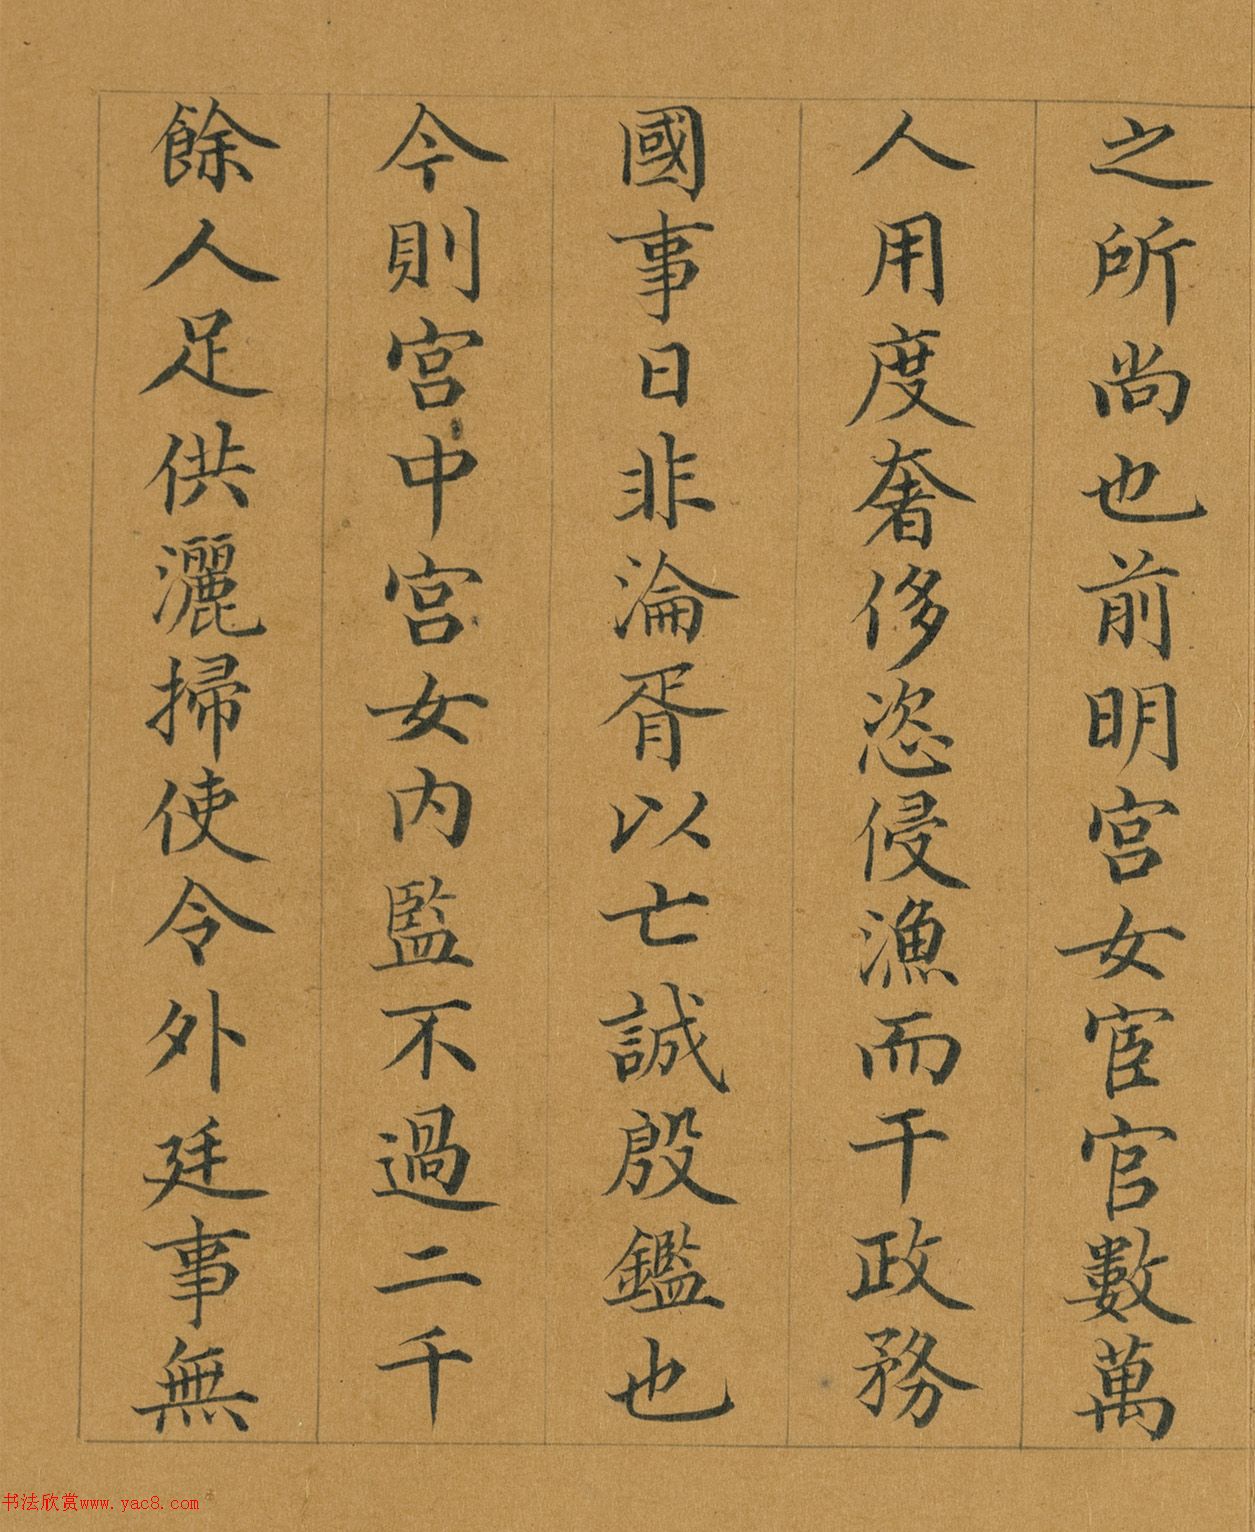 之所尚也前明宮女宦官數萬
人用度奢侈恣侵漁而干政務
國事日非淪胥以亡誠殷鑑也
今則宮中宮女內監不過二千
餘人足供灑掃使令外廷事無
书法欣赏www.yac8.com